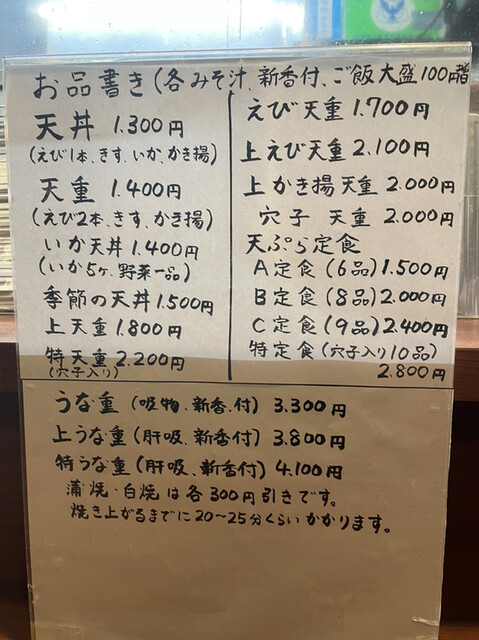 お品書き(各みそ汁、新香付、ご飯大盛100円増
天丼 1.300円
(えび1本、きす、いか、かき揚)
天重 1.400円
(えび2本、きす、かき揚)
いか天丼 1.400円
(いか5ヶ、野菜一品)
季節の天丼 1.500円
上天重 1.800円
特天重 2.200円
(穴子入り)
えび天重 1.700円
上えび天重 2.100円
上かき揚天重 2.000円
穴子 天重 2.000円
天ぷら定食
A定食(6品) 1.500円
B定食(8品) 2.000円
C定食(9品) 2.400円
特定食(穴子入り10品)
2.800円
うな重(吸物、新香、付) 3.300円
上うな重(肝吸、新香付) 3.800円
特うな重(肝吸、新香付) 4.100円
蒲焼・白焼は各300円引きです。
焼き上がるまでに20〜25分くらいかかります。